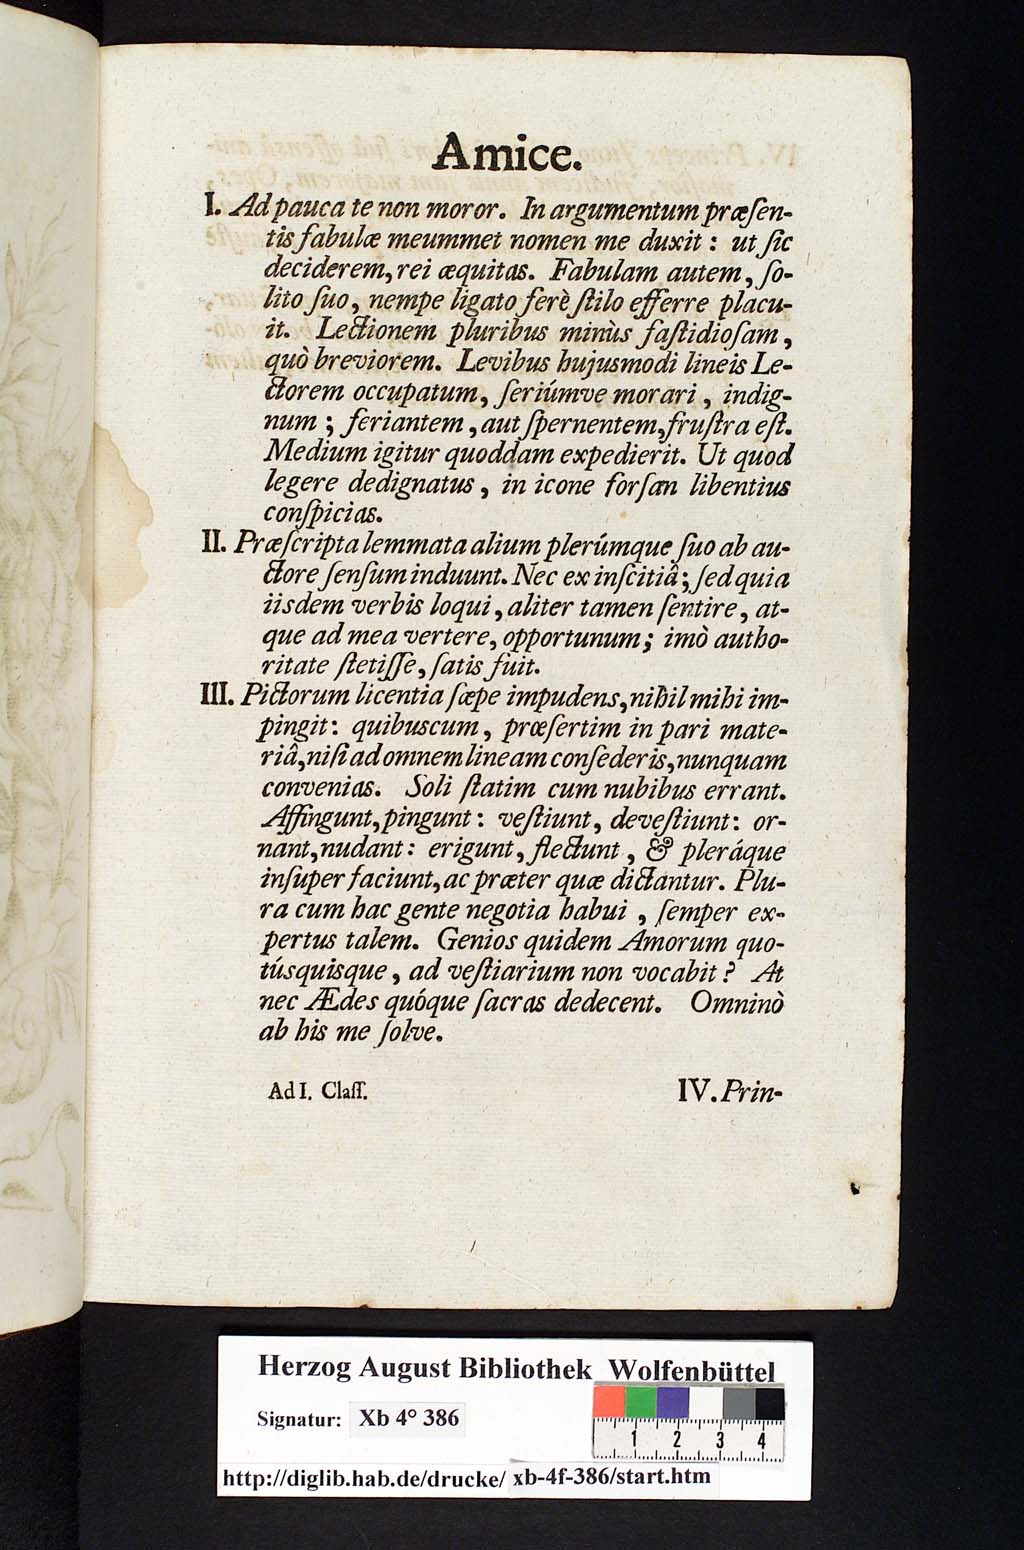 Amice.
I. Ad pauca te non moror. In argumentum præſen-
tis fabulæ meummet nomen me duxit: ut ſic
deciderem, rei æquitas. Fabulam autem, ſo-
lito ſuo, nempe ligato ferè ſtilo efferre placu-
it. Lectionem pluribus minùs faſtidioſam,
quò breviorem. Levibus hujusmodi lineis Le-
ctorem occupatum, ſeriúmve morari, indig-
num; feriantem, aut ſpernentem, fruſtra eſt.
Medium igitur quoddam expedierit. Ut quod
legere dedignatus, in icone forſan libentius
conſpicias.
II. Præſcripta lemmata alium plerúmque ſuo ab au-
ctore ſenſum induunt. Nec ex inſcitiâ; ſed quia
iisdem verbis loqui, aliter tamen ſentire, at-
que ad mea vertere, opportunum; imò autho-
ritate ſtetiſſe, ſatis fuit.
III. Pictorum licentia ſæpe impudens, nihil mihi im-
pingit: quibuscum, præſertim in pari mate-
riâ, niſi ad omnem lineam conſederis, nunquam
convenias. Soli ſtatim cum nubibus errant.
Affingunt, pingunt: veſtiunt, deveſtiunt: or-
nant, nudant: erigunt, flectunt, & pleráque
inſuper faciunt, ac præter quæ dictantur. Plu-
ra cum hac gente negotia habui, ſemper ex-
pertus talem. Genios quidem Amorum quo-
túsquisque, ad veſtiarium non vocabit? At
nec Ædes quóque ſacras dedecent. Omninò
ab his me ſolve.
Ad I. Claſſ. IV. Prin-
Herzog August Bibliothek Wolfenbüttel
Signatur: Xb 4° 386
1 2 3 4
http://diglib.hab.de/drucke/ xb-4f-386/start.htm